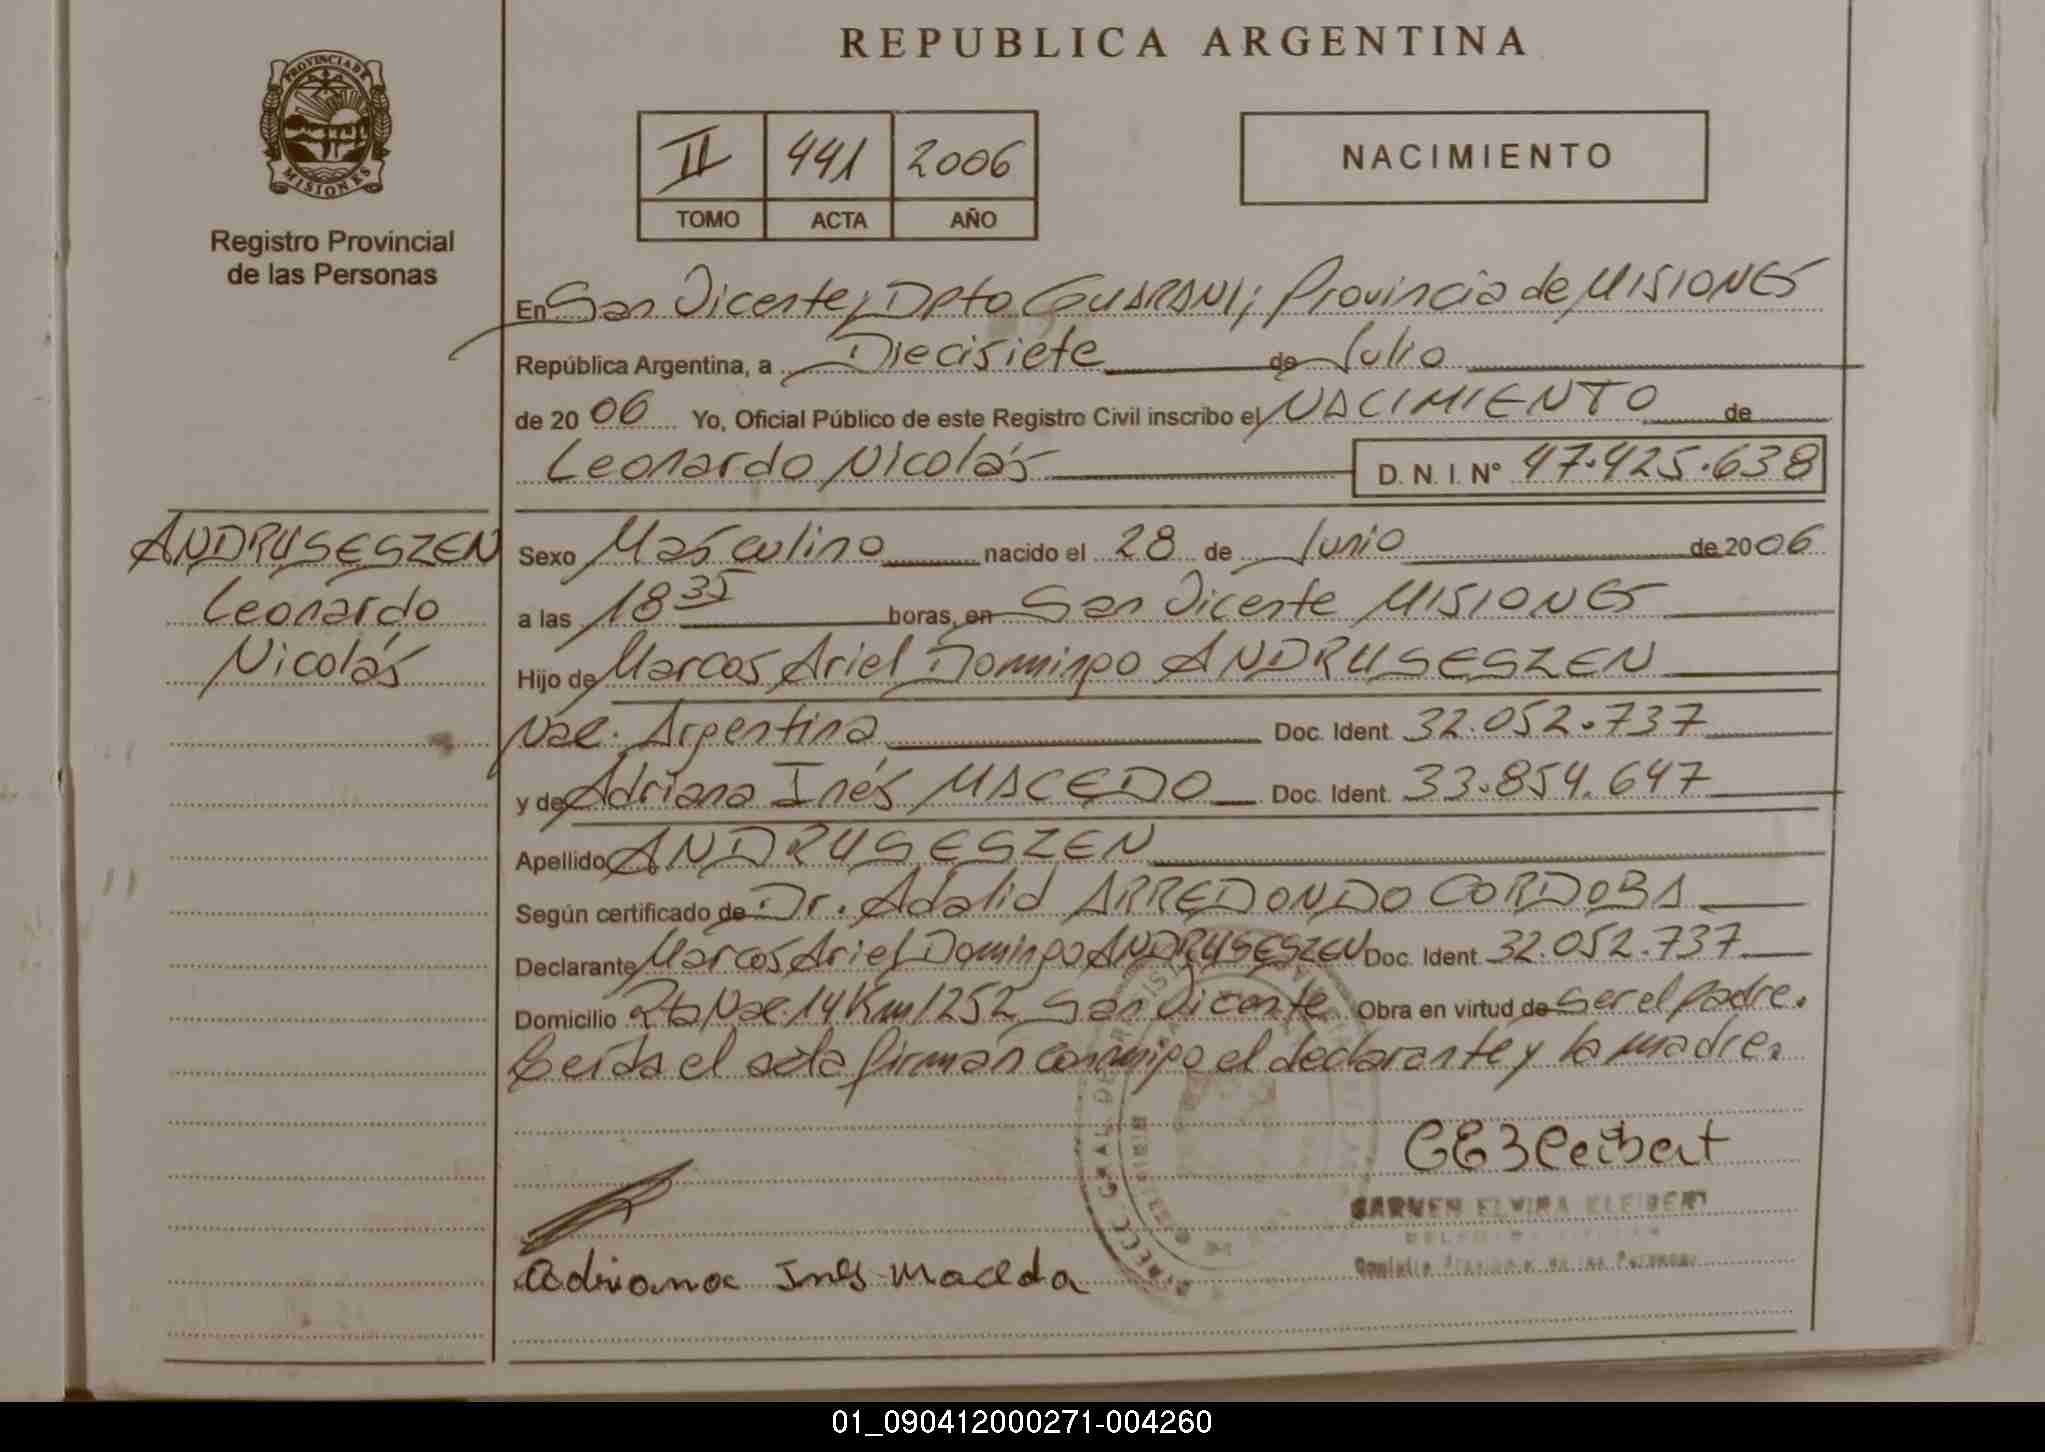 REPUBLICA ARGENTINA
PROVINCIA DE
MISIONES
Registro Provincial
de las Personas
II 441 2006
TOMO ACTA AÑO
NACIMIENTO
En San Vicente, Dpto GUARANI; Provincia de MISIONES
República Argentina, a Diecisiete de Julio
de 2006 Yo, Oficial Público de este Registro Civil inscribo el NACIMIENTO de
Leonardo Nicolás D. N. I. Nº 47.425.638
ANDRUSESZEN
Leonardo
Nicolás
Sexo Masculino nacido el 28 de Junio de 2006
a las 18 35 horas, en San Vicente MISIONES
Hijo de Marcos Ariel Domingo ANDRUSESZEN
Nac. Argentina Doc. Ident. 32.052.737
y de Adriana Inés MACEDO Doc. Ident. 33.854.647
Apellido ANDRUSESZEN
Según certificado de Dr. Adalid ARREDONDO CORDOBA
Declarante Marcos Ariel Domingo ANDRUSESZEN Doc. Ident. 32.052.737
Domicilio Rta Nac 14 Km 1252 San Vicente Obra en virtud de ser el padre.
Leída el acta firman conmigo el declarante y la madre.
CARMEN ELVIRA KLEIBERT
Adriana Ines Maceda
01_090412000271-004260